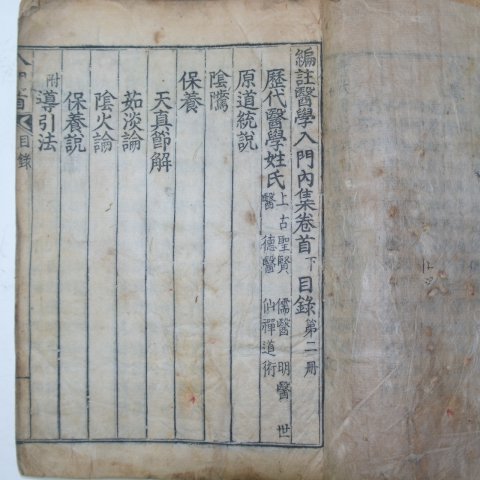 編註醫學入門內集卷首下目錄第二冊
歷代醫學姓氏 上古聖賢 儒醫 明醫 世
醫 德醫 仙禪道術
原道統說
陰騭
保養
天真節解
茹淡論
陰火論
保養說
附導引法
目錄